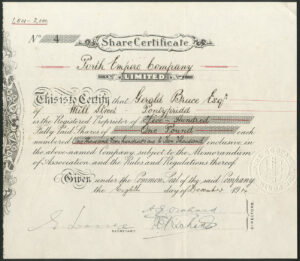 1,801 - 2,000
No 4
Share Certificate
Porth Empire Company
LIMITED.
This is to Certify that Gerald Bruce Esqr
of Mill Street Pontypridd
is the Registered Proprietor of Two Hundred
Fully Paid Shares of One Pound each
numbered One thousand Eight hundred and one to Two Thousand inclusive in
the above-named Company subject to the Memorandum
of Association and the Rules and Regulations thereof
Given under the Common Seal of the said Company
the Eighth day of December 19
SECRETARY
DIRECTORS